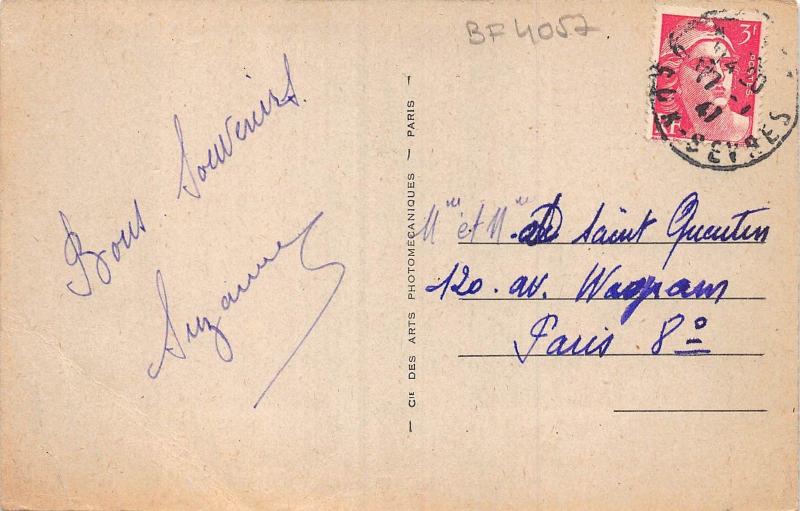 BF4057
Bons Souvenirs.
Suzanne
CIE DES ARTS PHOTOMÉCANIQUES — PARIS
3F
POSTES
RF
SEVRES
47
et de Saint Quentin
120. av. Wagram
Paris 8º